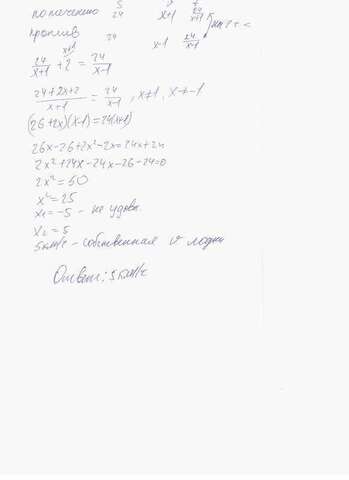 S v t
по течению 24 x+1 24/x+1
против 24 x-1 24/x-1
24/x+1 + 2 = 24/x-1
24+2x+2/x+1 = 24/x-1, x≠1, x≠-1
(26+2x)(x-1)=24(x+1)
26x-26+2x²-2x=24x+24
2x²+24x-24x-26-24=0
2x²=50
x²=25
x₁=-5 - не удовл.
x₂=5
5 км/ч - собственная v лодки
Ответ: 5 км/ч